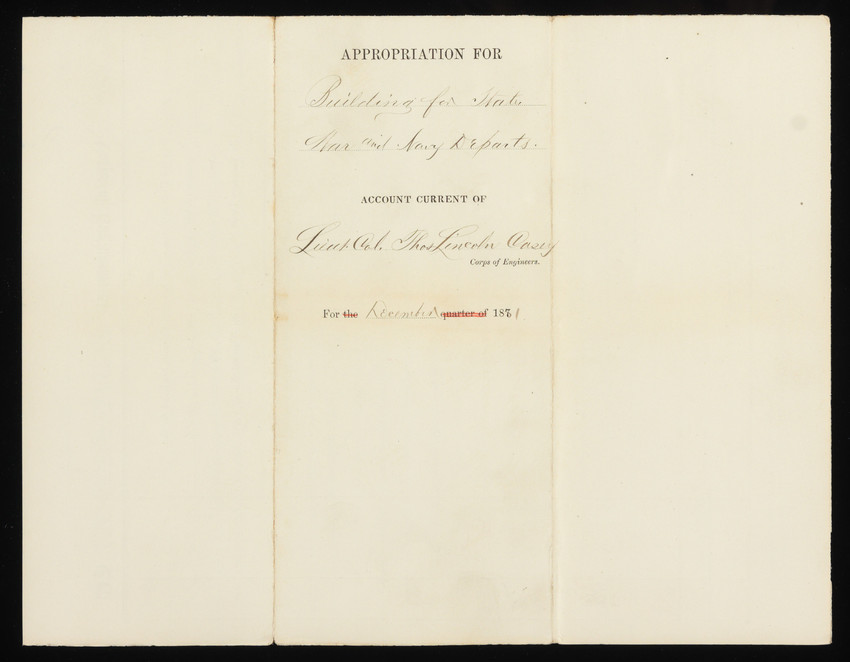 APPROPRIATION FOR
Building for State
War and Navy Departs.
ACCOUNT CURRENT OF
Lieut Col. Thos Lincoln Casey
Corps of Engineers.
For the December quarter of 1881